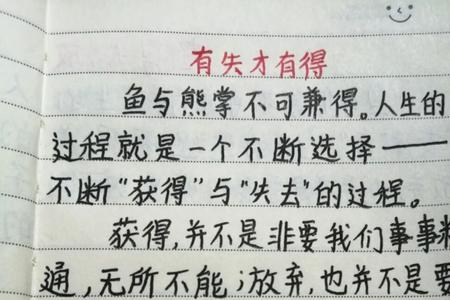 有失才有得
鱼与熊掌不可兼得。人生的
过程就是一个不断选择——
不断“获得”与“失去”的过程。
获得,并不是非要我们事事精
通,无所不能;放弃,也并不是要